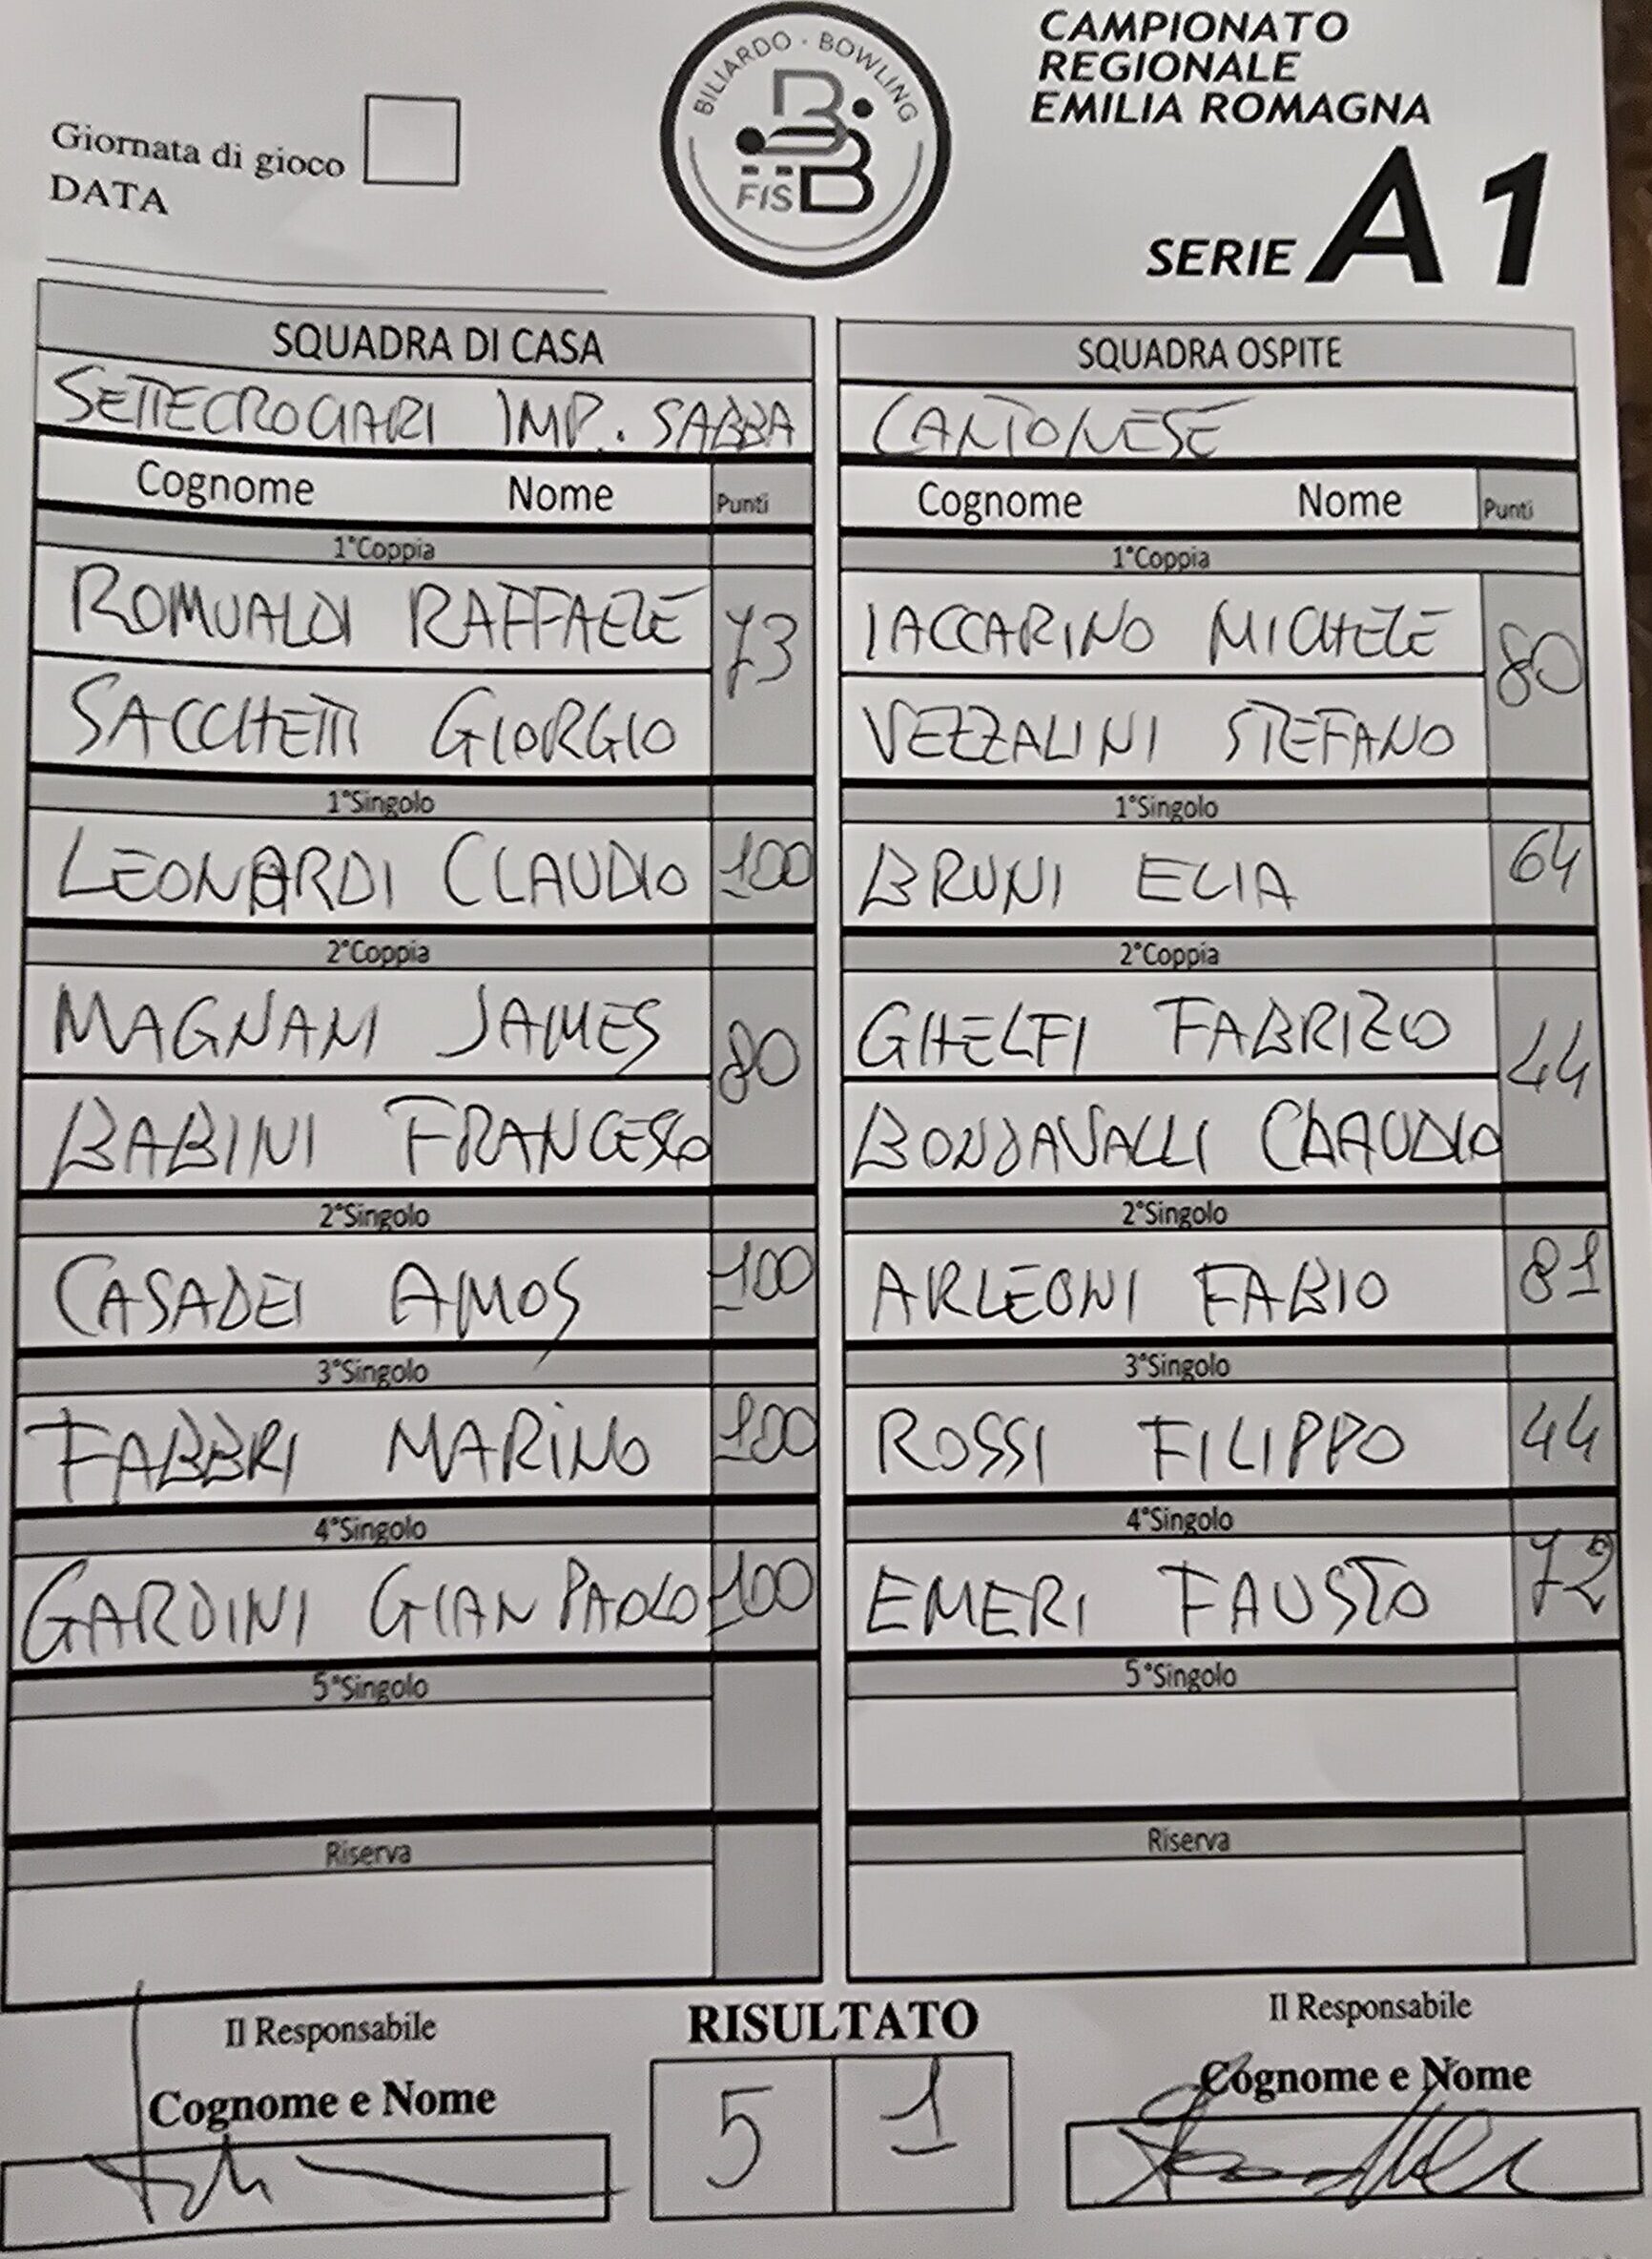 Giornata di gioco
DATA
BILIARDO · BOWLING
FISBB
CAMPIONATO
REGIONALE
EMILIA ROMAGNA
SERIE A1
SQUADRA DI CASA
SETTECROCIARI IMP. SABBA
Cognome Nome Punti
1°Coppia
ROMUALDI RAFFAELE 73
SACCHETTI GIORGIO
1°Singolo
LEONARDI CLAUDIO 100
2°Coppia
MAGNANI JAMES 80
BABINI FRANCESCO
2°Singolo
CASADEI AMOS 100
3°Singolo
FABBRI MARINO 100
4°Singolo
GARDINI GIAN PAOLO 100
5°Singolo
Riserva
SQUADRA OSPITE
CANTONESE
Cognome Nome Punti
1°Coppia
IACCARINO MICHELE 80
VEZZALINI STEFANO
1°Singolo
BRUNI ELIA 64
2°Coppia
GHELFI FABRIZIO 44
BONDAVALLI CLAUDIO
2°Singolo
ARLEONI FABIO 81
3°Singolo
ROSSI FILIPPO 44
4°Singolo
EMERI FAUSTO 72
5°Singolo
Riserva
Il Responsabile
Cognome e Nome
RISULTATO
5 1
Il Responsabile
Cognome e Nome